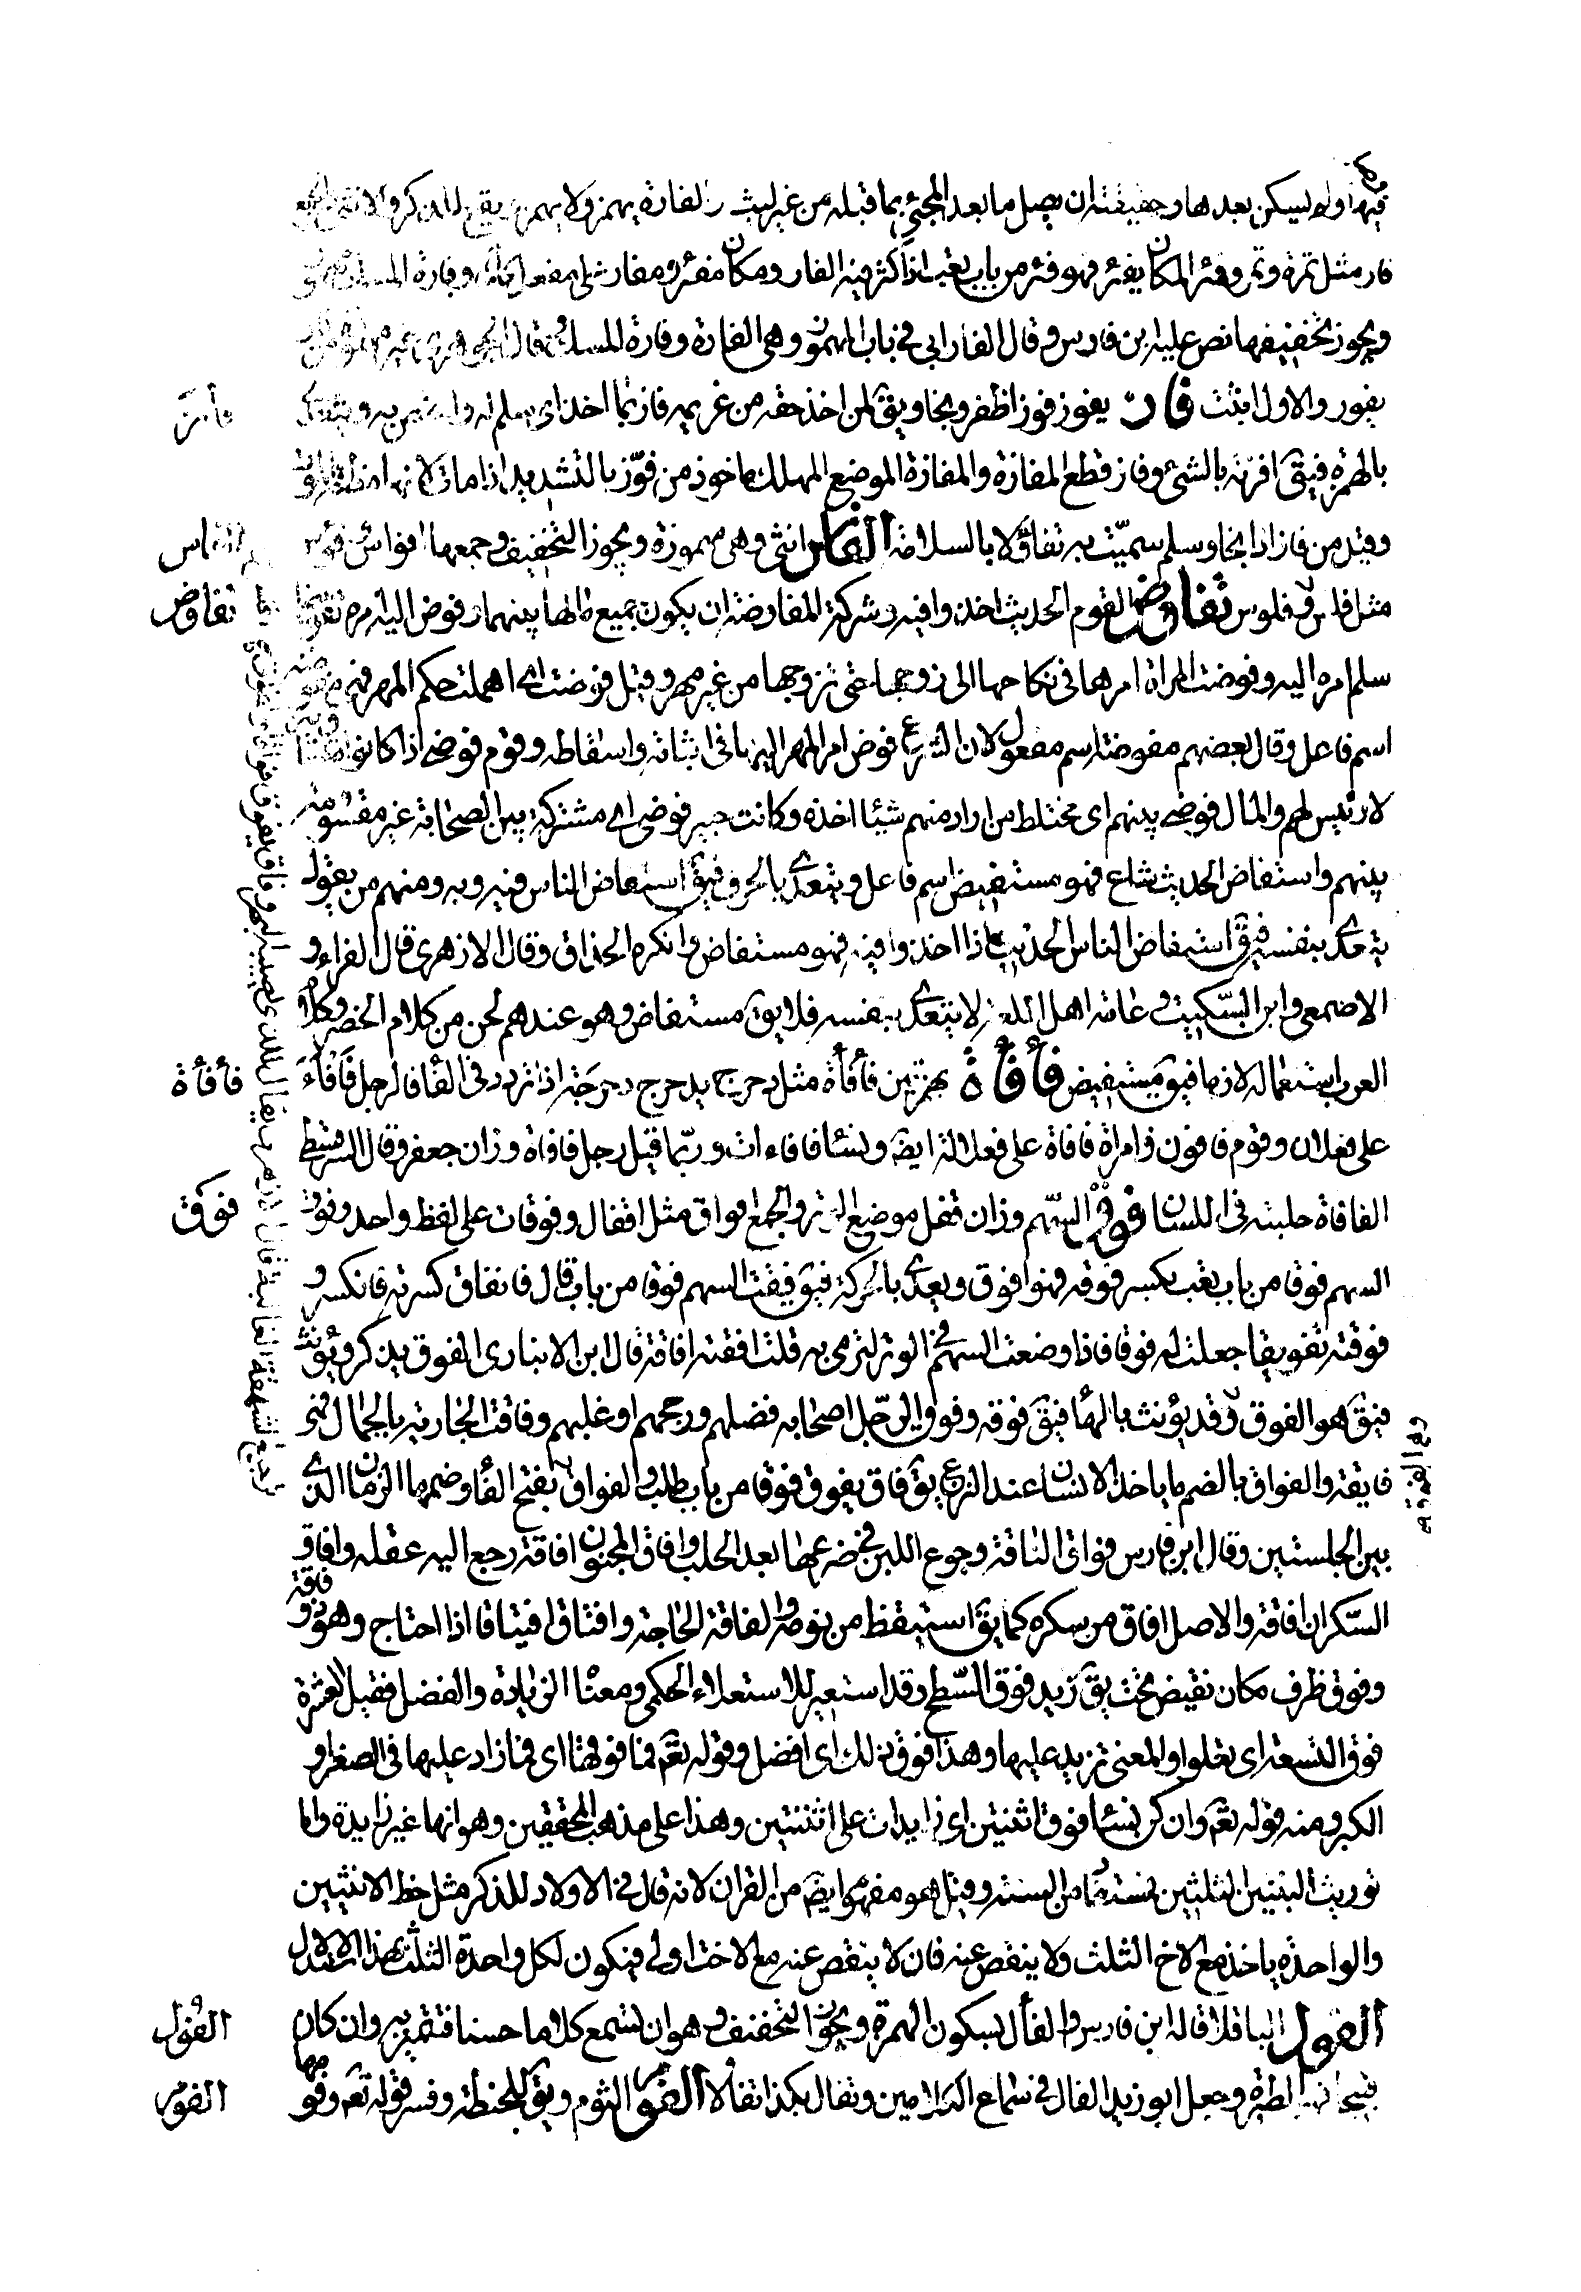 فيها ولم يسكن بعدها وحقيقته ان يصل ما بعد المجئ بما قبله من غير لبث والفارة يهمز ولا يهمز ويقع للذكر والانثى
فار مثل تمرة وتمر وفئر المكان يفئر فهو فئر من باب تعب اذا كثر فيه الفار ومكان مفئر ومفار على مفعل وفارة المسك
ويجوز تخفيفها نص عليه ابن فارس وقال الفارابى فى باب المهموز وهى الفارة وفارة المسك وقال الجوهرى غير مهموز من
يفور والاول اثبت فاز يفوز فوزا ظفر ونجا ويق لمن اخذ حقه من غريمه فاز بما اخذ اى سلم له واختص به ويتعدى
بالهمزة فيق افزته بالشئ وفاز قطع المفازة والمفازة الموضع المهلك ماخوذ من فوّز بالتشديد اذا مات لانها مظنة الموت
وقيل من فاز اذا نجا وسلم سميّت به تفاؤلا بالسلامة الفاس انثى وهى مهموزة ويجوز التخفيف وجمعها افؤس وفؤس
مثل فلس وفلوس تفاوض القوم الحديث اخذوا فيه وشركة المفاوضة ان يكون جميع مالهما بينهما وفوض اليه امره تفويضا
سلم امره اليه وفوضت المراة امرها فى نكاحها الى زوجها حتى تزوجها من غير مهر وقيل فوضت اى اهملت حكم المهر فهى مفوضة
اسم فاعل وقال بعضهم مفوضة اسم مفعول لان الشرع فوض امر المهر اليها فى اثباته واسقاطه وقوم فوضى اذا كانوا
لا رئيس لهم والمال فوضى بينهم اى مختلط من اراد منهم شيئا اخذه وكانت خيبر فوضى اى مشتركة بين الصحابة غير مقسومة
بينهم واستفاض الحديث شاع فهو مستفيض اسم فاعل ويتعدى بالحرف فيق استفاض الناس فيه وبه ومنهم من يقول
يتعدى بنفسه فيق استفاض الناس الحديث اذا اخذوا فيه فهو مستفاض وانكره الحذاق وقال الازهرى قال الفراء و
الاصمعى وابن السّكيت وعامة اهل اللغة لا يتعدى بنفسه فلا يق مستفاض وهو عندهم لحن من كلام الحضر وكلام
العرب استعماله لازما فيق مستفيض فأفأة بهمزتين فأفأة مثل دحرج يدحرج دحرجة اذا تردد فى الفأ فالرجل فأفاء
على فعلال وقوم فافاون وامراة فافاة على فعلالة ايضه ونسا فافاءات وربّما قيل رجل فافاة وزان جعفر وقال السرقسطى
الفافاة حلبته فى اللسان فوق السّهم وزان قفل موضع الوتر والجمع افواق مثل اقفال وفوقات على لفظ واحد وفوق
السهم فوقا من باب تعب تكسر فوقه فهو افوق ويعدى بالحركة فيق فقت السهم فوقا من باب قال فانفاق كسرته فانكسر و
فوقته تفويقا جعلت له فوقا فاذا وضعت السهم فى الوتر لترمى به قلت افقته افاقة قال ابن الانبارى الفوق يذكر ويؤنث
فيق هو الفوق وقد يؤنث بالها فيق فوقه وفوق الرجل اصحابه فضلهم ورجحهم او غلبهم وفاقت الجارية بالجمال فهى
فايقة والفواق بالضم ما ياخذ الانسان عند النزع يق فاق يفوق فوقا من باب طلب والفواق بفتح الفا وضمها الزمان الذى
بين الحلبتين وقال ابن فارس فواق الناقة رجوع اللبن فى ضرعها بعد الحلب وافاق المجنون افاقة رجع اليه عقله وافاق
السّكران افاقة والاصل افاق من سكره كما يق استيقظ من نومه والفاقة الحاجة وافتاق افتياقا اذا احتاج وهو ذو فاقة
وفوق ظرف مكان نقيض تحت يق زيد فوق السّطح وقد استعير للاستعلاء الحكمى ومعناه الزيادة والفضل فقيل العشرة
فوق التسعة اى تعلوا والمعنى تزيد عليها وهذا فوق ذلك اى افضل وقوله تعه فما فوقها اى فما زاد عليها فى الصغر او
الكبر ومنه قوله تعه وان كن نسئا فوق اثنتين اى زايدات على اثنتين وهذا على مذهب المحققين وهو انها غير زايدة واما
توريث البنتين الثلثين فمستفاد من السنة وقيل هو مفهوم ايضه من القران لانه قال فى الاولاد للذكر مثل حظ الانثيين
والواحدة ياخذ مع الاخ الثلث ولا ينقص عنه فان لا ينقص عنه مع الاخت اولى فيكون لكل واحدة الثلث بهذا الاستدلال
الفول الباقلا قاله ابن فارس والفأل بسكون الهمزة ويجوز التخفيف هو ان تسمع كلاما حسنا فتتيمن به وان كان
قبيحا فهو الطيرة وجعل ابو زيد الفال فى سماع الكلامين وتفال بكذا تفألا الفوم الثوم ويق للحنطة وفسر قوله تعه وفومها
فأز
الفاس
تفاوض
فأفأة
فوق
الفول
الفوم